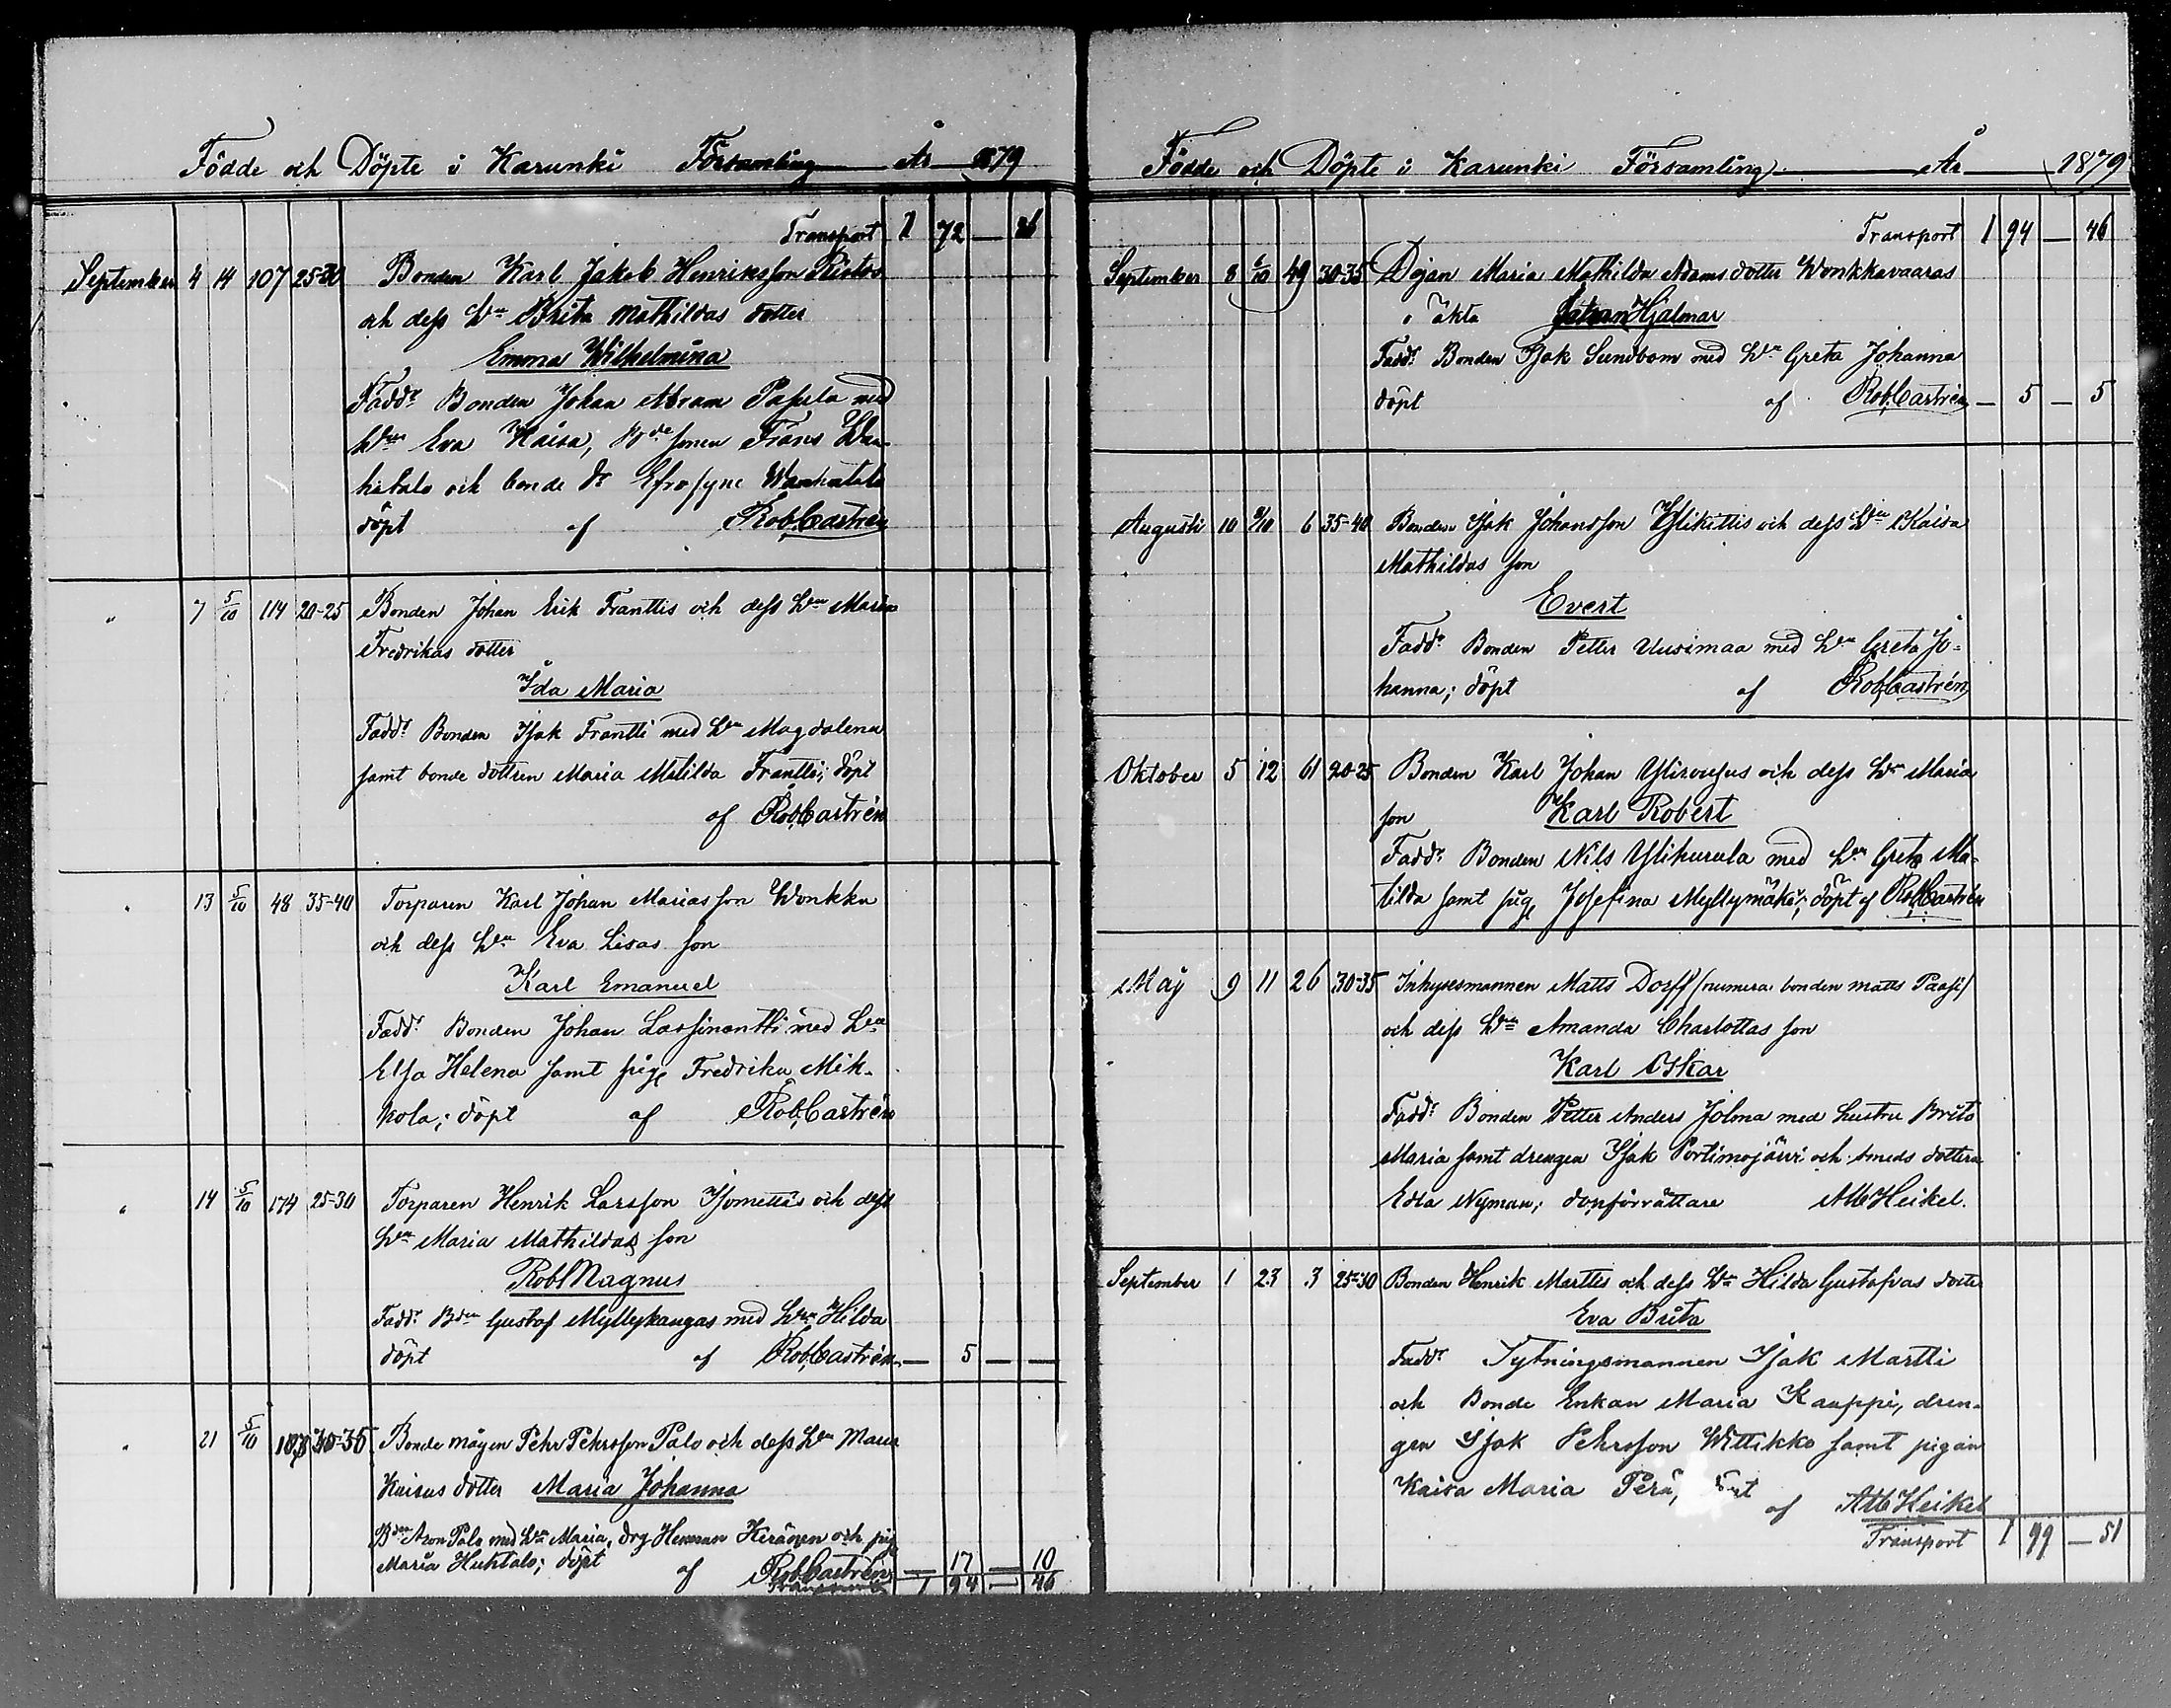 Födde och Döpte i Karunki Församling År 1879
Transport 1 72 — 36
September 4 14 107 25-30 Bonden Karl Jakob Henriksson Ristos
och dess h:u Brita Mathildas dotter
Emma Wilhelmina
Fadd: Bonden Johan Abram Papela med
h:u Eva Kaisa, B:de sonen Frans Wan-
hatalo och bonde d:r Efrosyne Wanhatalo
döpt af Rob. Castrén
" 7 5/10 114 20-25 Bonden Johan Erik Franttis och dess h:u Maria
Fredrikas dotter
Ida Maria
Fadd: Bonden Isak Frantti med h:u Magdalena
samt bonde dottren Maria Matilda Frantti; döpt
af Rob. Castrén
" 13 5/10 48 35-40 Torparen Karl Johan Mariasson Wonkka
och dess h:u Eva Lisas son
Karl Emanuel
Fadd: Bonden Johan Lassinantti med h:u
Elsa Helena samt pig. Fredrika Mik-
kola; döpt af Rob. Castrén
" 14 5/10 174 25-30 Torparen Henrik Larsson Isomettis och dess
h:u Maria Mathildas son
Rob Magnus
Fadd: B:den Gustaf Myllykangas med h:u Hilda
döpt af Rob. Castrén — 5 — —
" 21 5/10 30-35 Bonde mågen Pehr Pehrsson Palo och dess h:u Maria
Kaisas dotter Maria Johanna
B:den Aron Palo med h:u Maria, drg Herman Keränen och pig
Maria Huhtalo; döpt af Rob. Castrén — 17 — 10
Transport 1 94 — 46
Födde och Döpte i Karunki Församling År 1879
Transport 1 94 — 46
September 8 5/10 49 30-35 Dejan Maria Mathilda Adams dotter Wonkkavaaras
o äkta Johan Hjalmar
Fadd: Bonden Isak Sundbom med h:u Greta Johanna
döpt af Rob. Castrén — 5 — 5
Augusti 10 9/10 6 35-40 Bonden Isak Johansson Ylikittis och dess h:u Kaisa
Mathildas son
Evert
Fadd: Bonden Petter Uusimaa med h:u Greta Jo-
hanna; döpt af Rob. Castrén
Oktober 5 12 61 20-25 Bonden Karl Johan Ylirousus och dess h:u Maria
son Karl Robert
Fadd: Bonden Nils Ylikurula med h:u Greta Ma-
tilda samt pig. Josefina Myllymäki; döpt af Rob. Castrén
Maj 9 11 26 30-35 Inhysesmannen Matts Dorff (numera bonden Matts Paasi)
och dess h:u Amanda Charlottas son
Karl Oskar
Fadd: Bonden Petter Anders Jolma med hustru Brita
Maria samt drengen Isak Portimojärvi och smeds dottern
Edla Nyman; dopförrättare Alb Heikel.
September 1 23 3 25-30 Bonden Henrik Marttis och dess h:u Hilda Gustafvas dotter
Eva Brita
Fadd: Tytningsmannen Isak Martti
och Bonde Enkan Maria Kauppi, dren-
gen Isak Pehrsson Wittikko samt pigan
Kaisa Maria Perä, af Alb Heikel
Transport 1 99 — 51